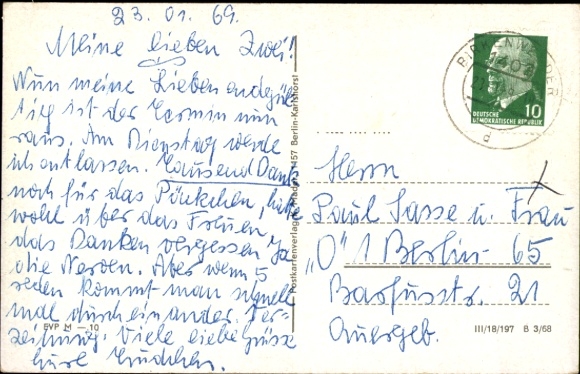 23. 01. 69.
Meine lieben Zwei!
Nun meine Lieben endgül
tig ist der Termin nun
raus. Am Dienstag werde
ich entlassen. Tausend Dank
noch für das Päckchen, habe
wohl über das Freuen
das Danken vergessen. Ja
die Nerven. Aber wenn 5
reden kommt man schnell
mal durcheinander. Ver-
zeihung. Viele liebe Grüsse
Eure
EVP M — 10
Postkartenverlag 1157 Berlin-Karlshorst
BIRKENWERDER
1402
d
10
DEUTSCHE
DEMOKRATISCHE REPUBLIK
Herrn
Paul Sasse u. Frau
"O" 1 Berlin 65
Barfusstr. 21
Quergeb.
III/18/197 B 3/68